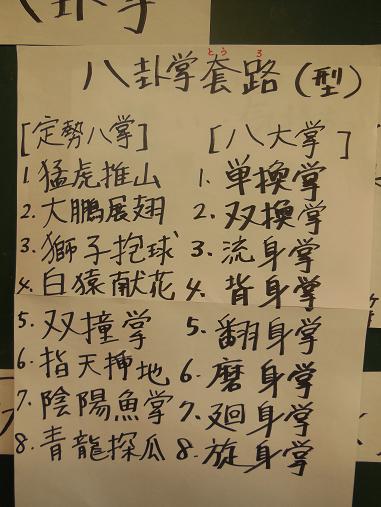 とう ろ
八卦掌套路(型)
[定勢八掌]
1. 猛虎推山
2. 大鵬展翅
3. 獅子抱球
4. 白猿献花
5. 双撞掌
6. 指天挿地
7. 陰陽魚掌
8. 青龍探瓜
[八大掌]
1. 単換掌
2. 双換掌
3. 流身掌
4. 背身掌
5. 翻身掌
6. 磨身掌
7. 廻身掌
8. 旋身掌